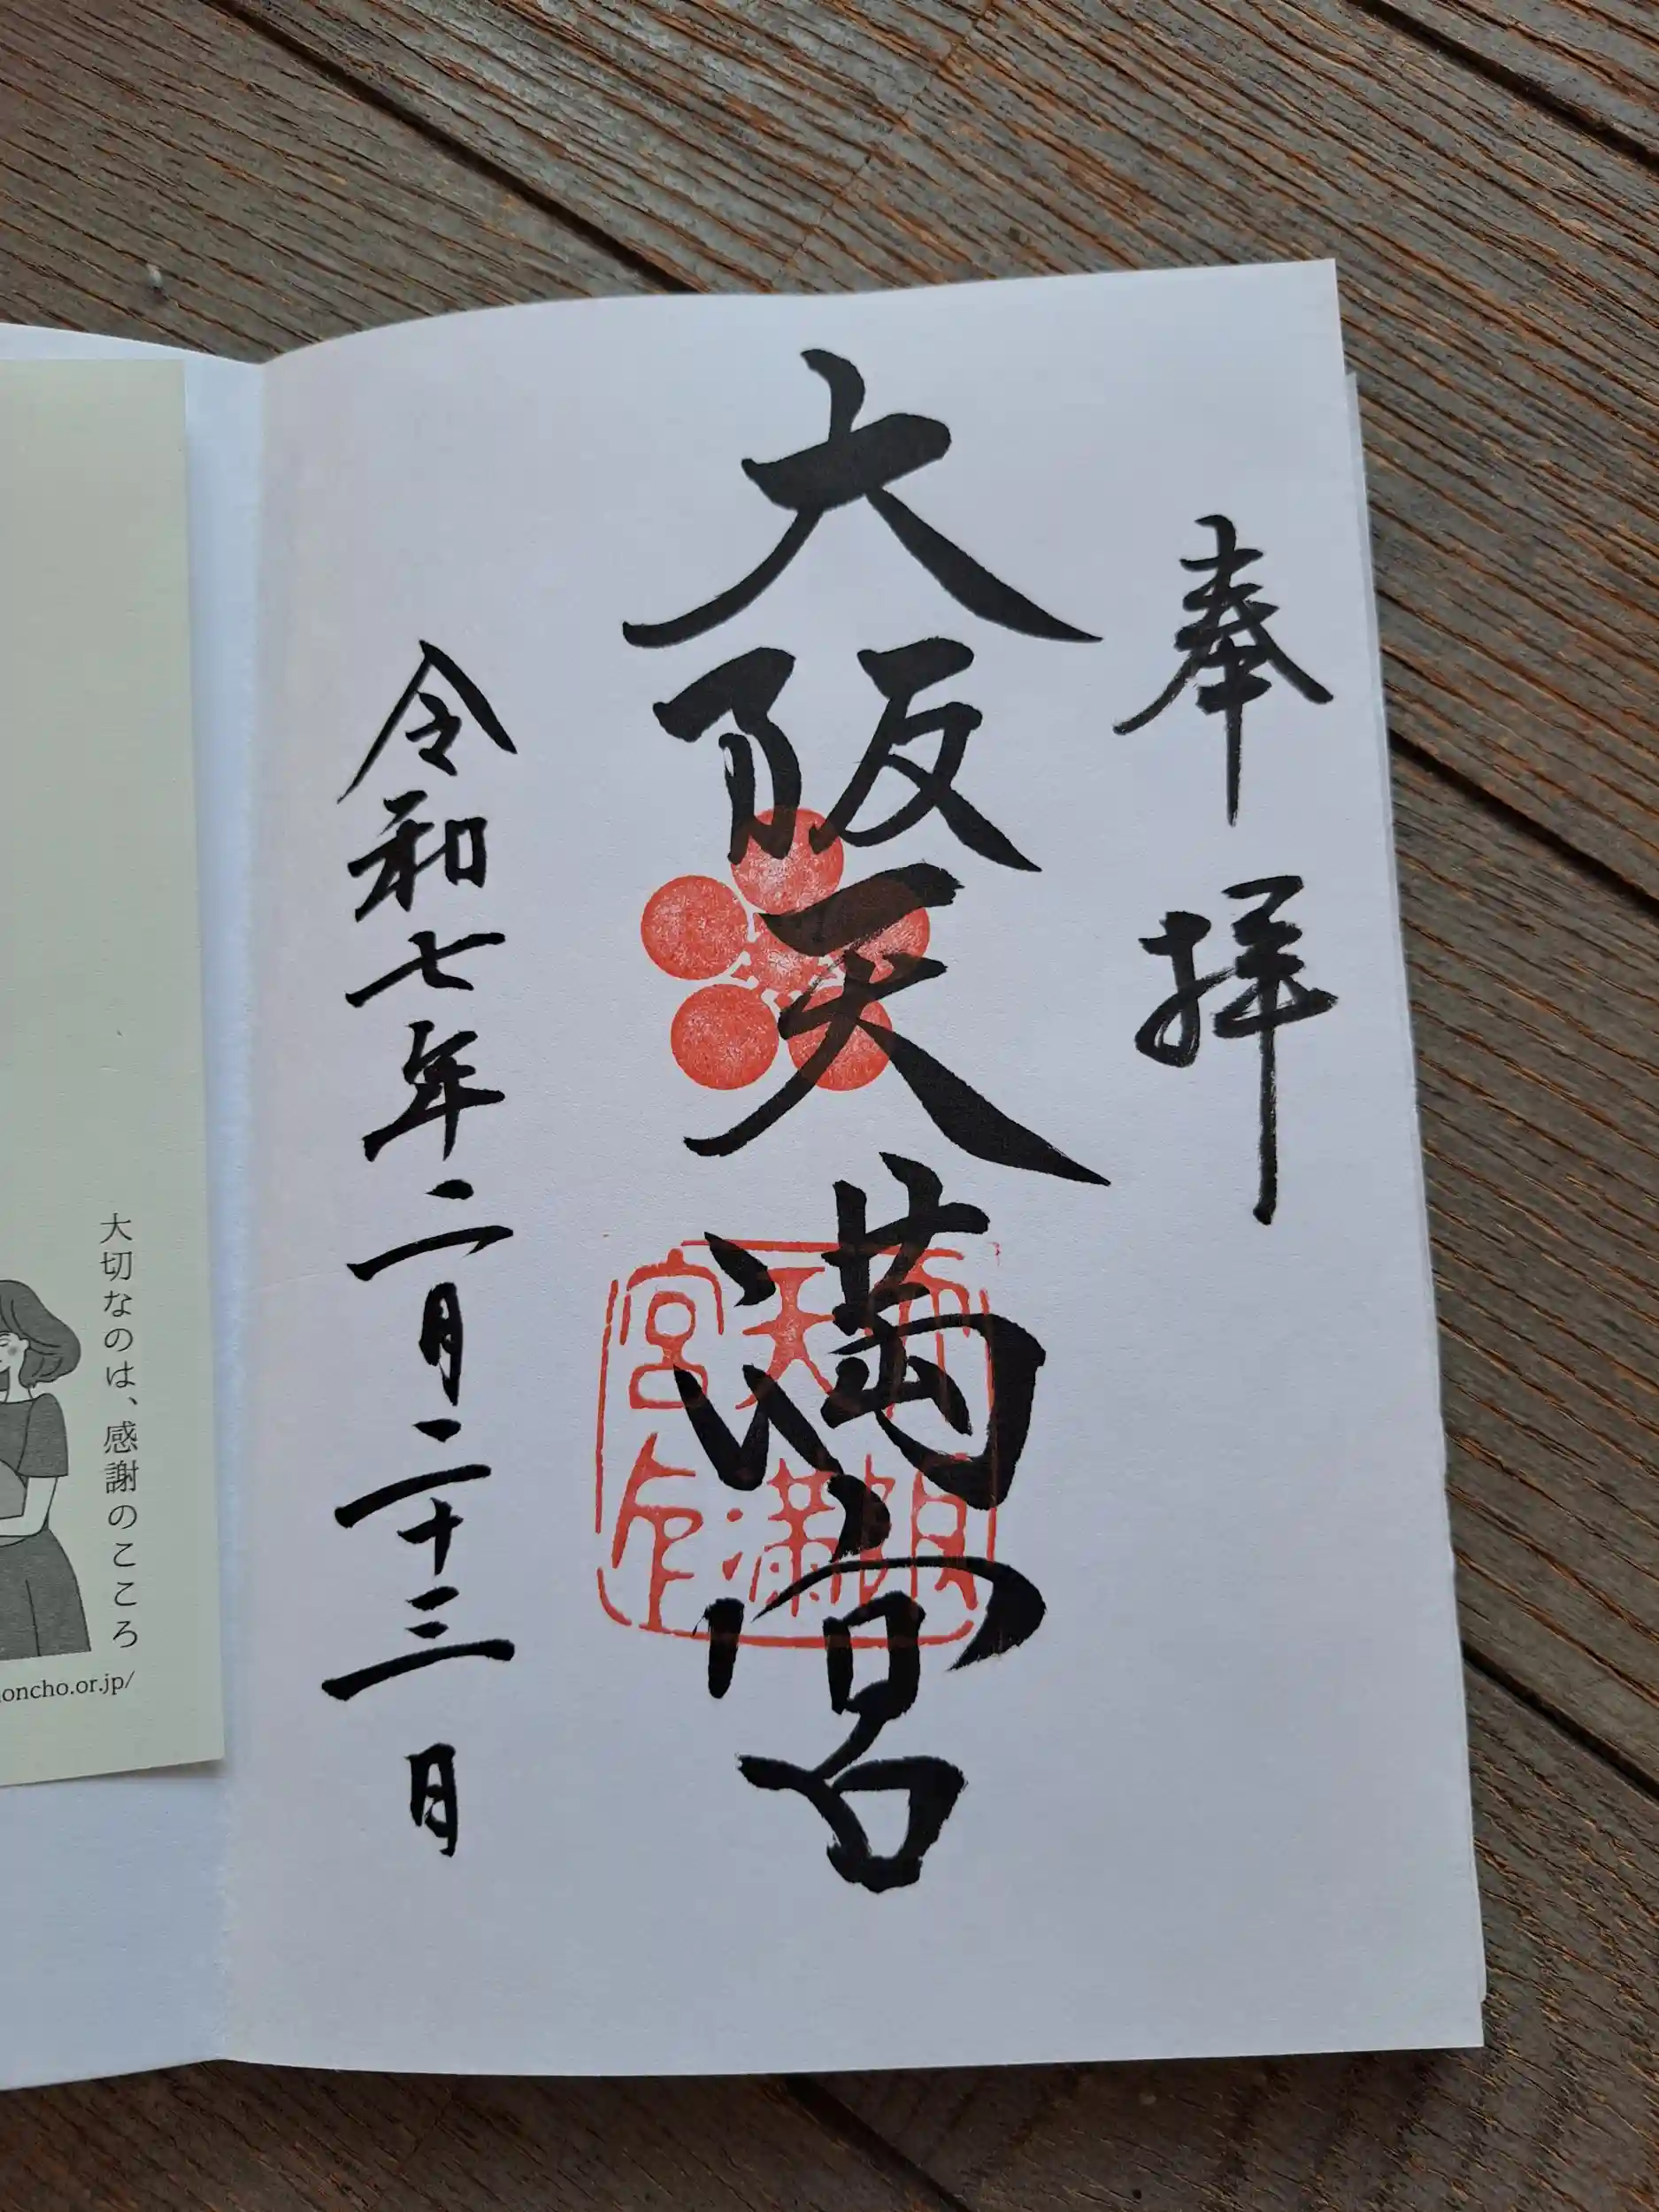 奉拝
大阪天満宮
大阪天満宮印
令和七年二月二十三日
大切なのは、感謝のこころ
oncho.or.jp/